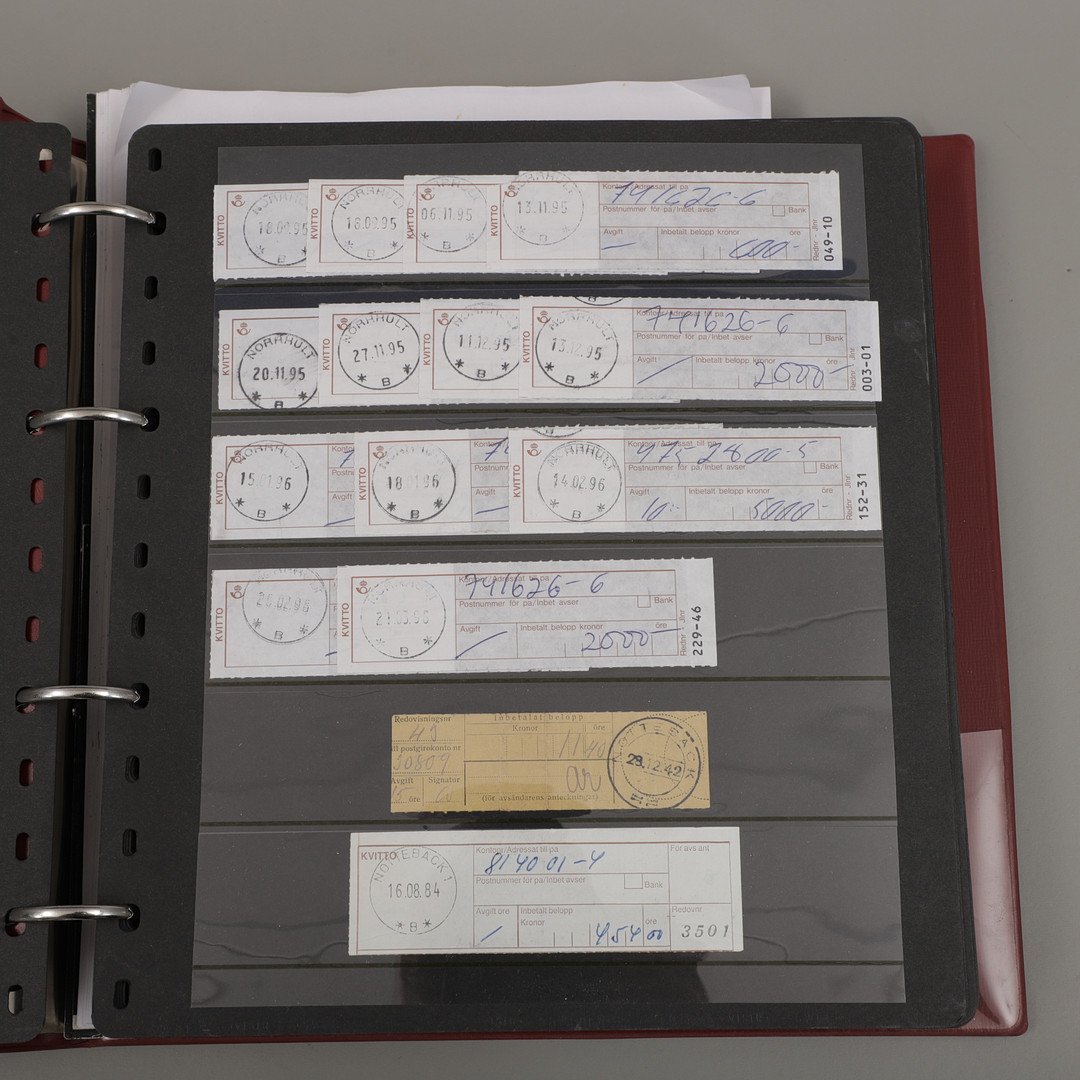 KVITTO
NORRHULT
18.09.95
B
KVITTO
NORRHULT
18.09.95
B
KVITTO
NORRHULT
06.11.95
B
KVITTO
NORRHULT
13.11.95
B
Kontonr/Adressat till pa
741626-6
Postnummer för pa/Inbet avser
Bank
Avgift
Inbetalt belopp kronor
öre
600-
Rednr - Jnr
049-10
KVITTO
NORRHULT
20.11.95
B
KVITTO
NORRHULT
27.11.95
B
KVITTO
NORRHULT
11.12.95
B
KVITTO
NORRHULT
13.12.95
B
Kontonr/Adressat till pa
741626-6
Postnummer för pa/Inbet avser
Bank
Avgift
Inbetalt belopp kronor
öre
2000-
Rednr - Jnr
003-01
KVITTO
NORRHULT
15.01.96
B
Konto
7
Postn
Avgift
KVITTO
NORRHULT
18.01.96
B
Kont
Postnum
Avgift
KVITTO
NORRHULT
14.02.96
B
Kontonr/Adressat till pa
475 2800-5
Postnummer för pa/Inbet avser
Bank
Avgift
10:-
Inbetalt belopp kronor
öre
5000-
Rednr - Jnr
152-31
KVITTO
NORRHULT
26.02.96
B
KVITTO
NORRHULT
21.03.96
B
Kontonr/Adressat till pa
741626-6
Postnummer för pa/Inbet avser
Bank
Avgift
Inbetalt belopp kronor
öre
2000-
Rednr - Jnr
229-46
Redovisningsnr
43
Inbetalat belopp
Kronor
öre
ll postgirokonto nr
50809
Avgift
15 öre
Signatur
(för avsändarens anteckningar)
NOTTEBÄCK
28.12.42
KVITTO
NOTTEBÄCK 1
16.08.84
B
Kontonr/Adressat till pa
814001-4
Postnummer för pa/inbet avser
Bank
För avs ant
Avgift öre
Inbetalt belopp
Kronor
öre
454 00
Redovnr
3501